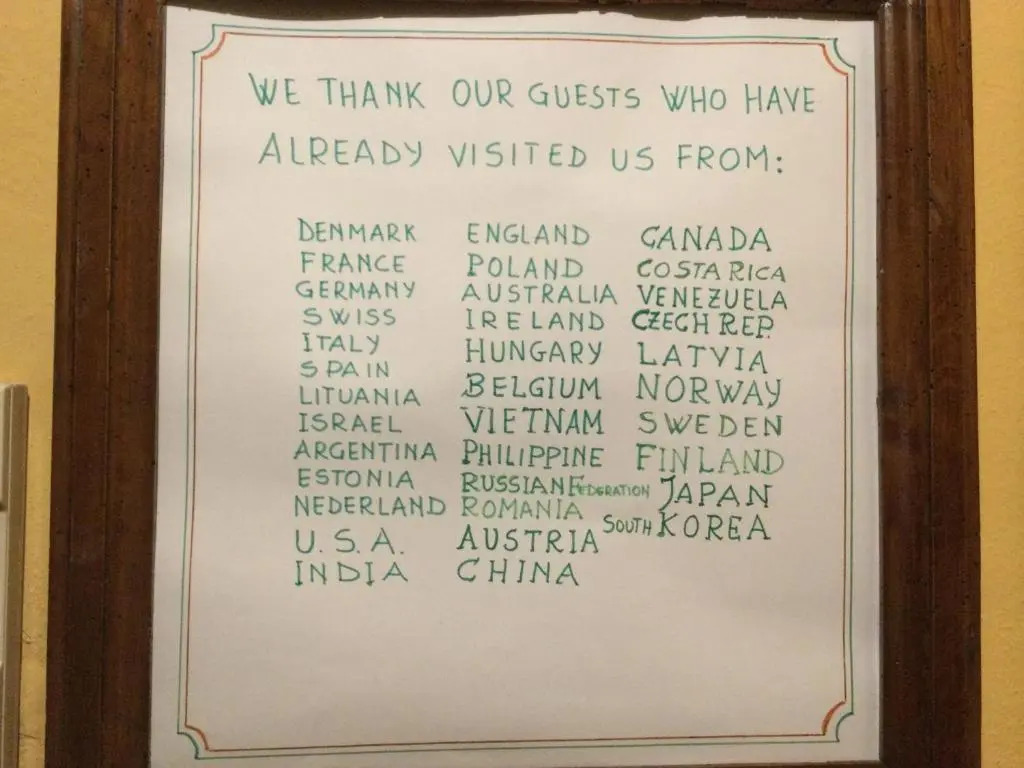 WE THANK OUR GUESTS WHO HAVE
ALREADY VISITED US FROM:
DENMARK
FRANCE
GERMANY
SWISS
ITALY
SPAIN
LITUANIA
ISRAEL
ARGENTINA
ESTONIA
NEDERLAND
U.S.A.
INDIA
ENGLAND
POLAND
AUSTRALIA
IRELAND
HUNGARY
BELGIUM
VIETNAM
PHILIPPINE
RUSSIAN FEDERATION
ROMANIA
AUSTRIA
CHINA
CANADA
COSTA RICA
VENEZUELA
CZECH REP.
LATVIA
NORWAY
SWEDEN
FINLAND
JAPAN
SOUTH KOREA